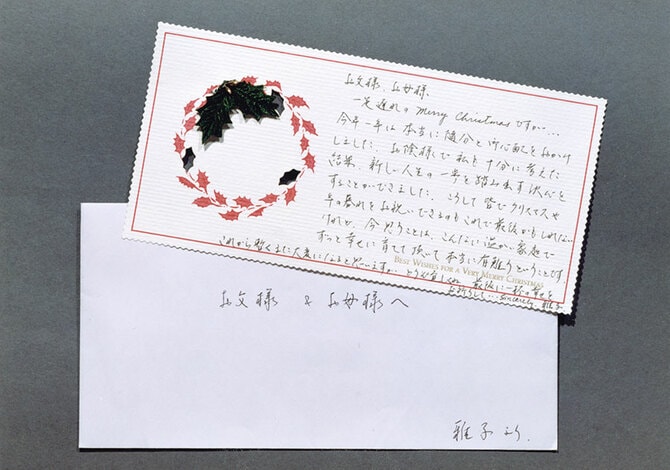 お父様、お母様
一足遅れの Merry Christmas ですが....
今年一年は本当に随分と御心配をおかけ
しました。お陰様で私も十分に考えた
結果、新しい人生の一歩を踏み出す決心を
することができました。こうして皆でクリスマスや
年の暮れをお祝いできるのもこれで最後かもしれない
けれど、今思うことは、こんなに温かい家庭で
ずっと幸せに育てて頂いて本当に有難うということです
BEST WISHES FOR A VERY MERRY CHRISTMAS
これから暫くまた大変になると思いますが、どうぞ宜しくね。最後に一杯の幸せを
お祈りして... Sincerely, 雅子
お父様 & お母様へ
雅子より.